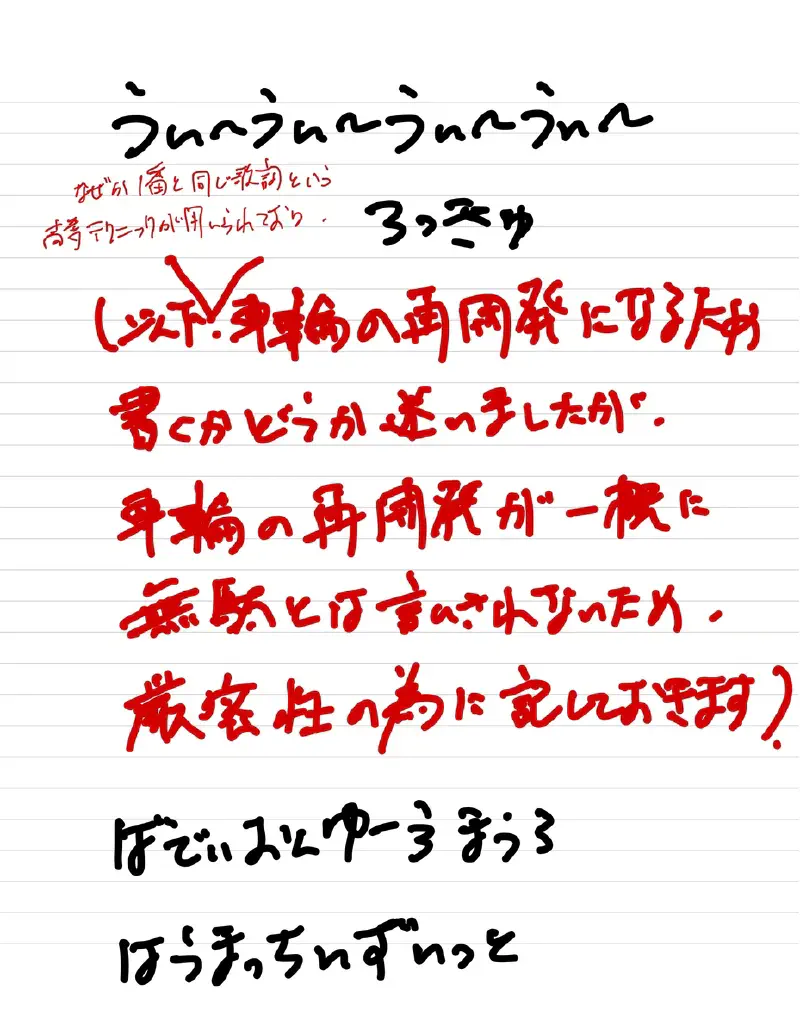 うぃ〜うぃ〜うぃ〜うぃ〜
なぜか1番と同じ歌詞という
高等テクニックが用いられており、
ろっきゅ
(以下、車輪の再開発になるため
書くかどうか迷いましたが、
車輪の再開発が一概に
無駄とは言いきれないため、
厳密性の為に記しておきます)
ばでぃおんゆーろまうろ
はうまっちいずいっと